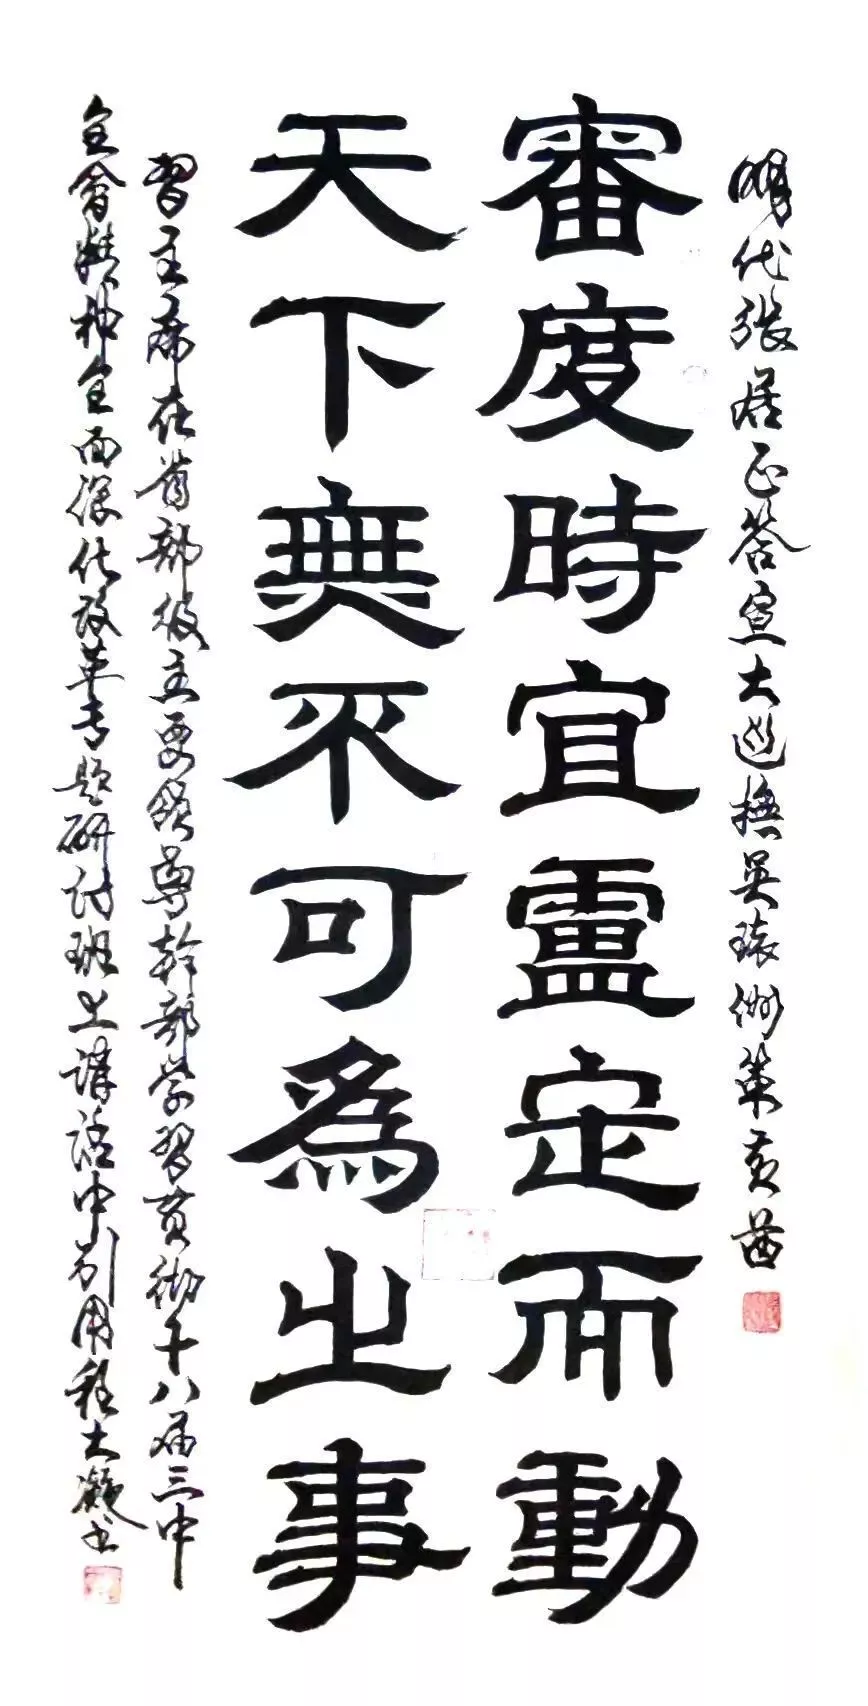 明代張居正答宣大巡撫吳環洲策黃酋
審度時宜盧定而動
天下無不可爲之事
習主席在省部级主要領導幹部学習貫彻十八届三中
全會精神全面深化改革专题研讨班上講話中引用程大凝书